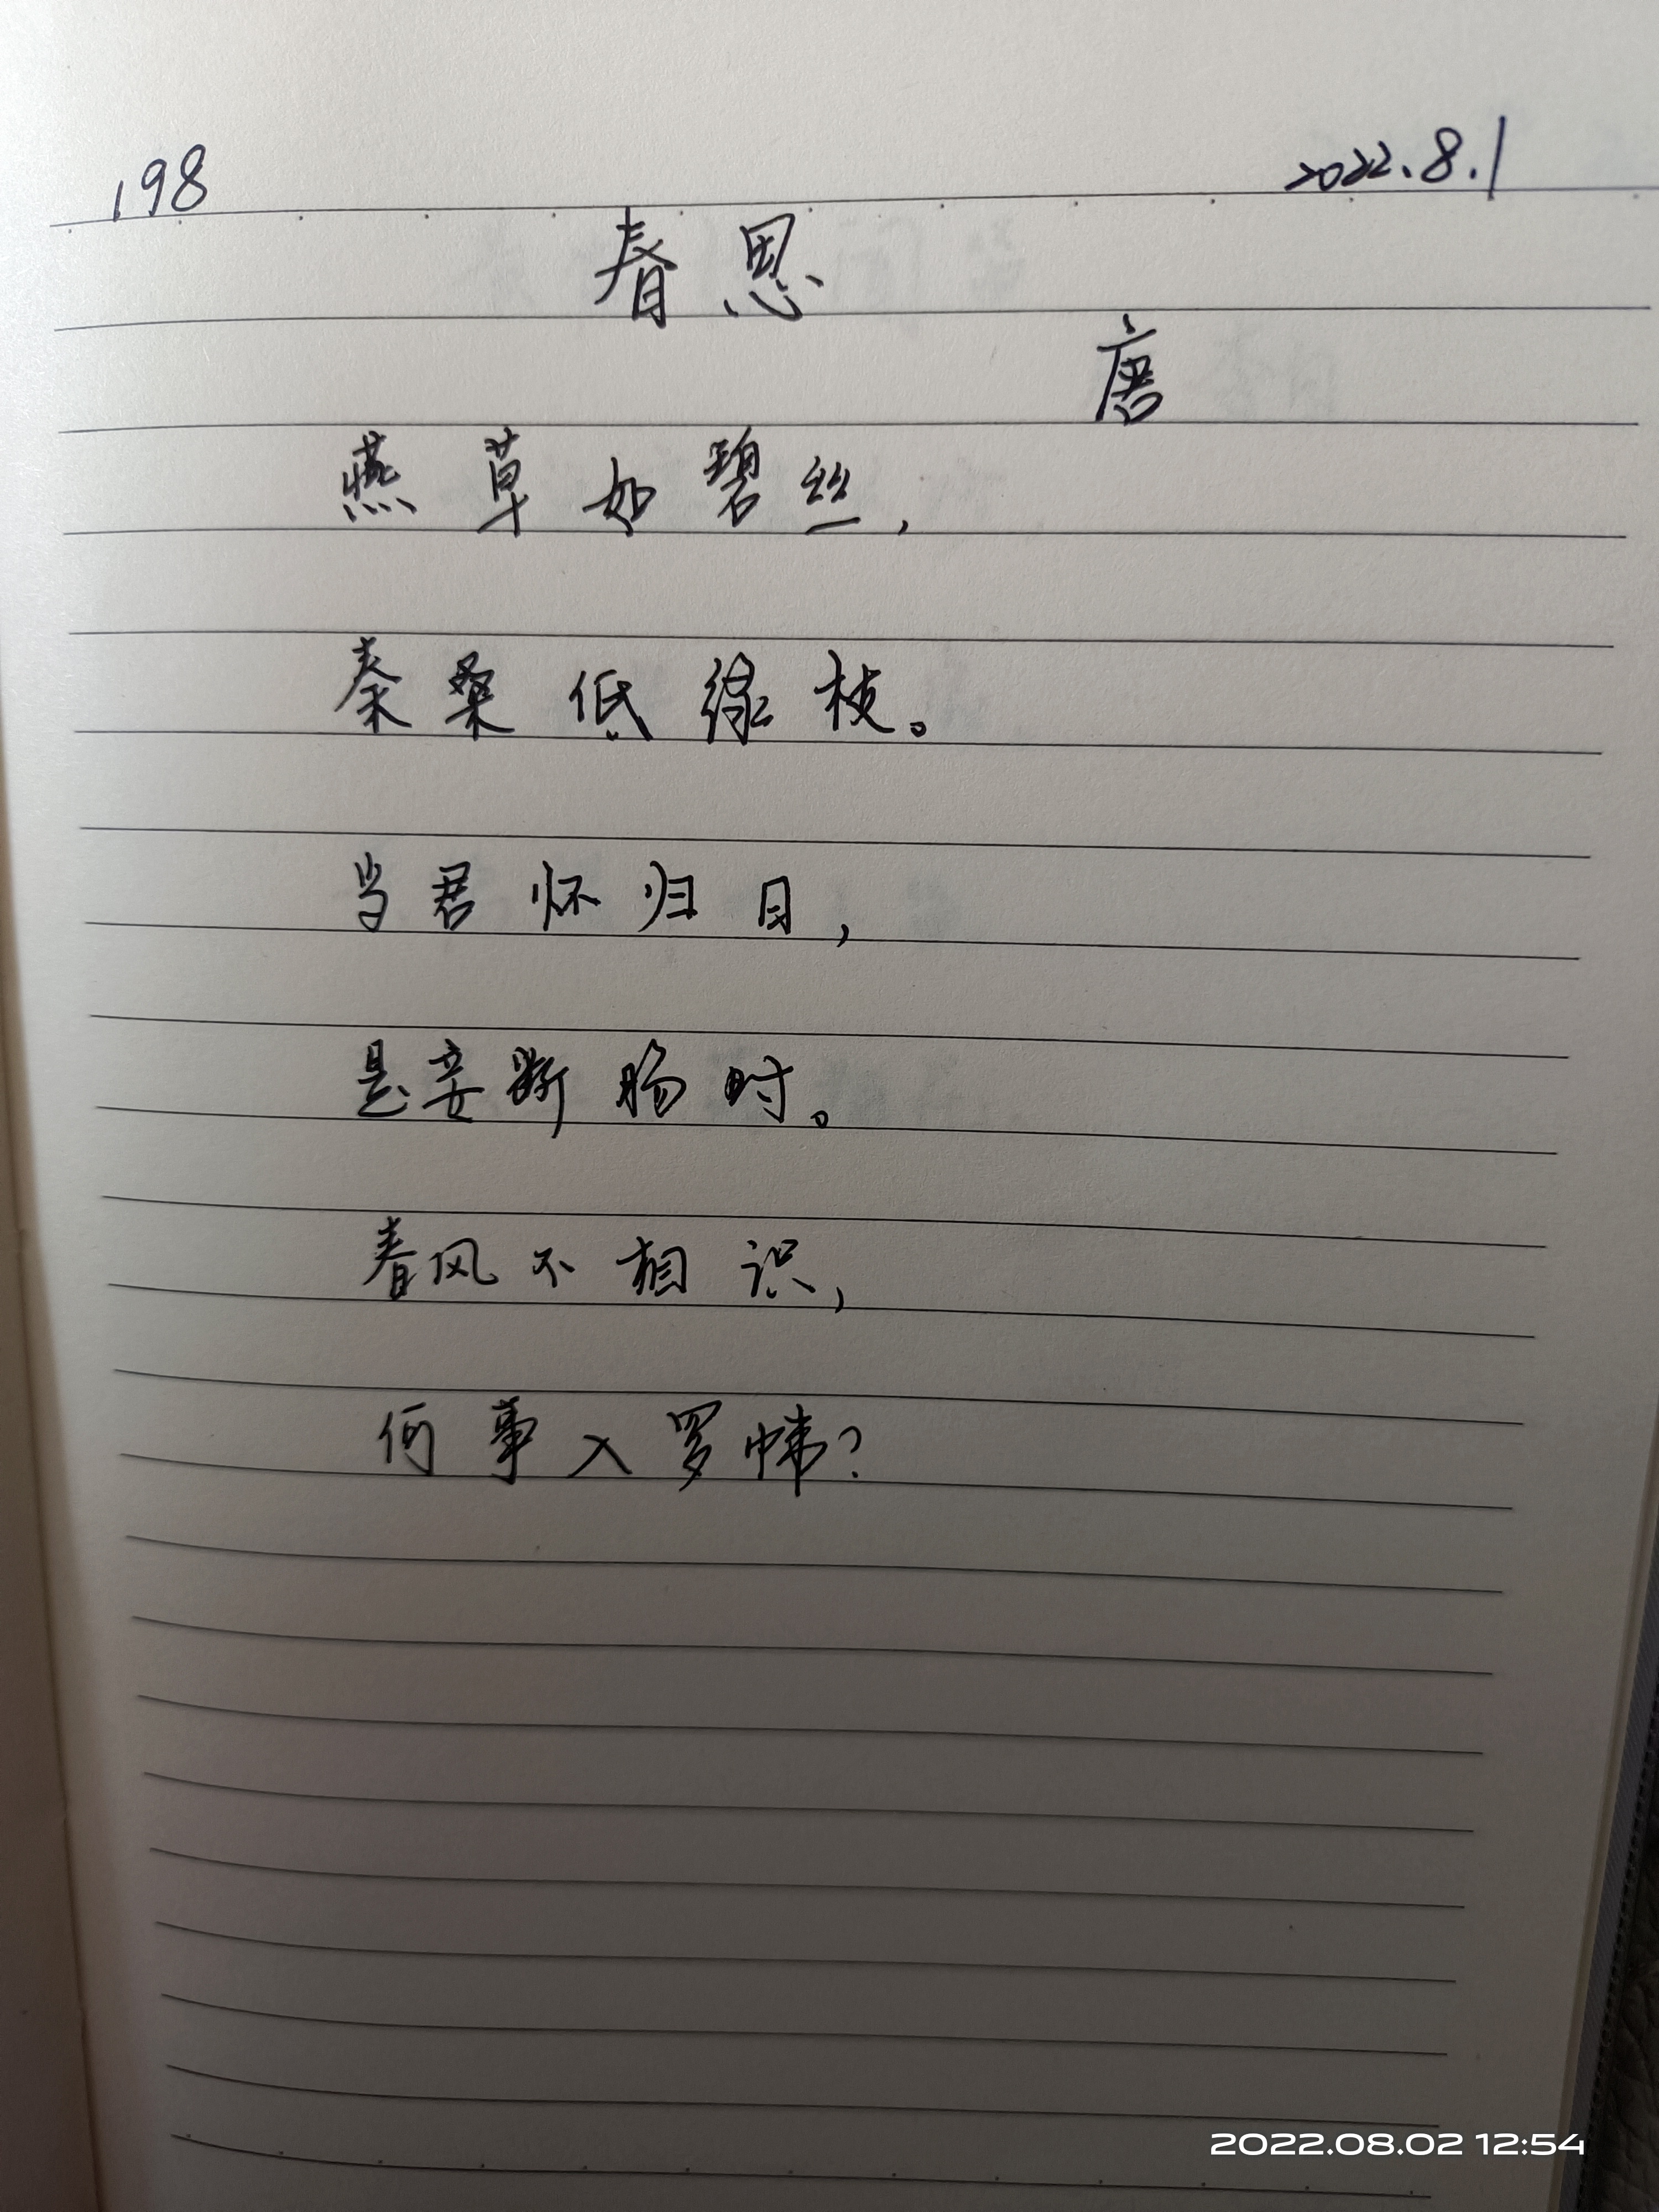 198
2022.8.1
春思
唐
燕草如碧丝,
秦桑低绿枝。
当君怀归日,
是妾断肠时。
春风不相识,
何事入罗帏?
2022.08.02 12:54